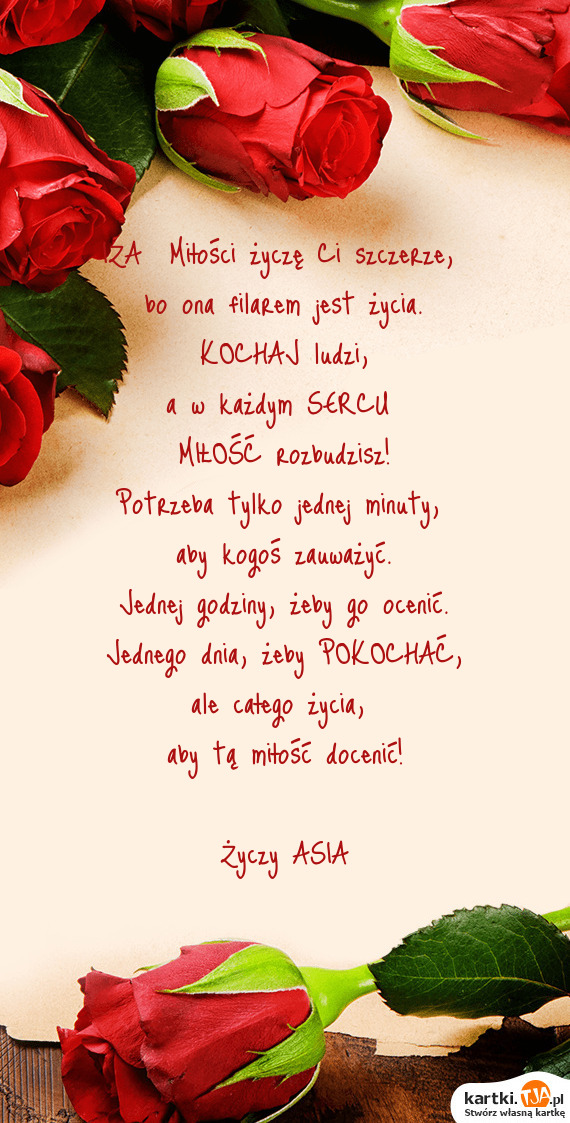 IZA Miłości życzę Ci szczerze,
bo ona filarem jest życia.
KOCHAJ ludzi,
a w każdym SERCU
MIŁOŚĆ rozbudzisz!
Potrzeba tylko jednej minuty,
aby kogoś zauważyć.
Jednej godziny, żeby go ocenić.
Jednego dnia, żeby POKOCHAĆ,
ale całego życia,
aby tą miłość docenić!
Życzy ASIA
kartki.TJA.pl
Stwórz własną kartkę